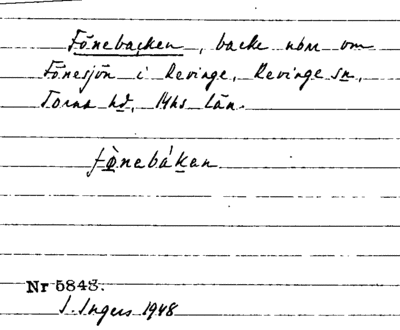 Fönebacken, backe nom om
Fönesjön i Revinge, Revinge sn,
Torna hd, Mhs län.
fø̀nebákan
Nr 5848.
I. Ingers 1948